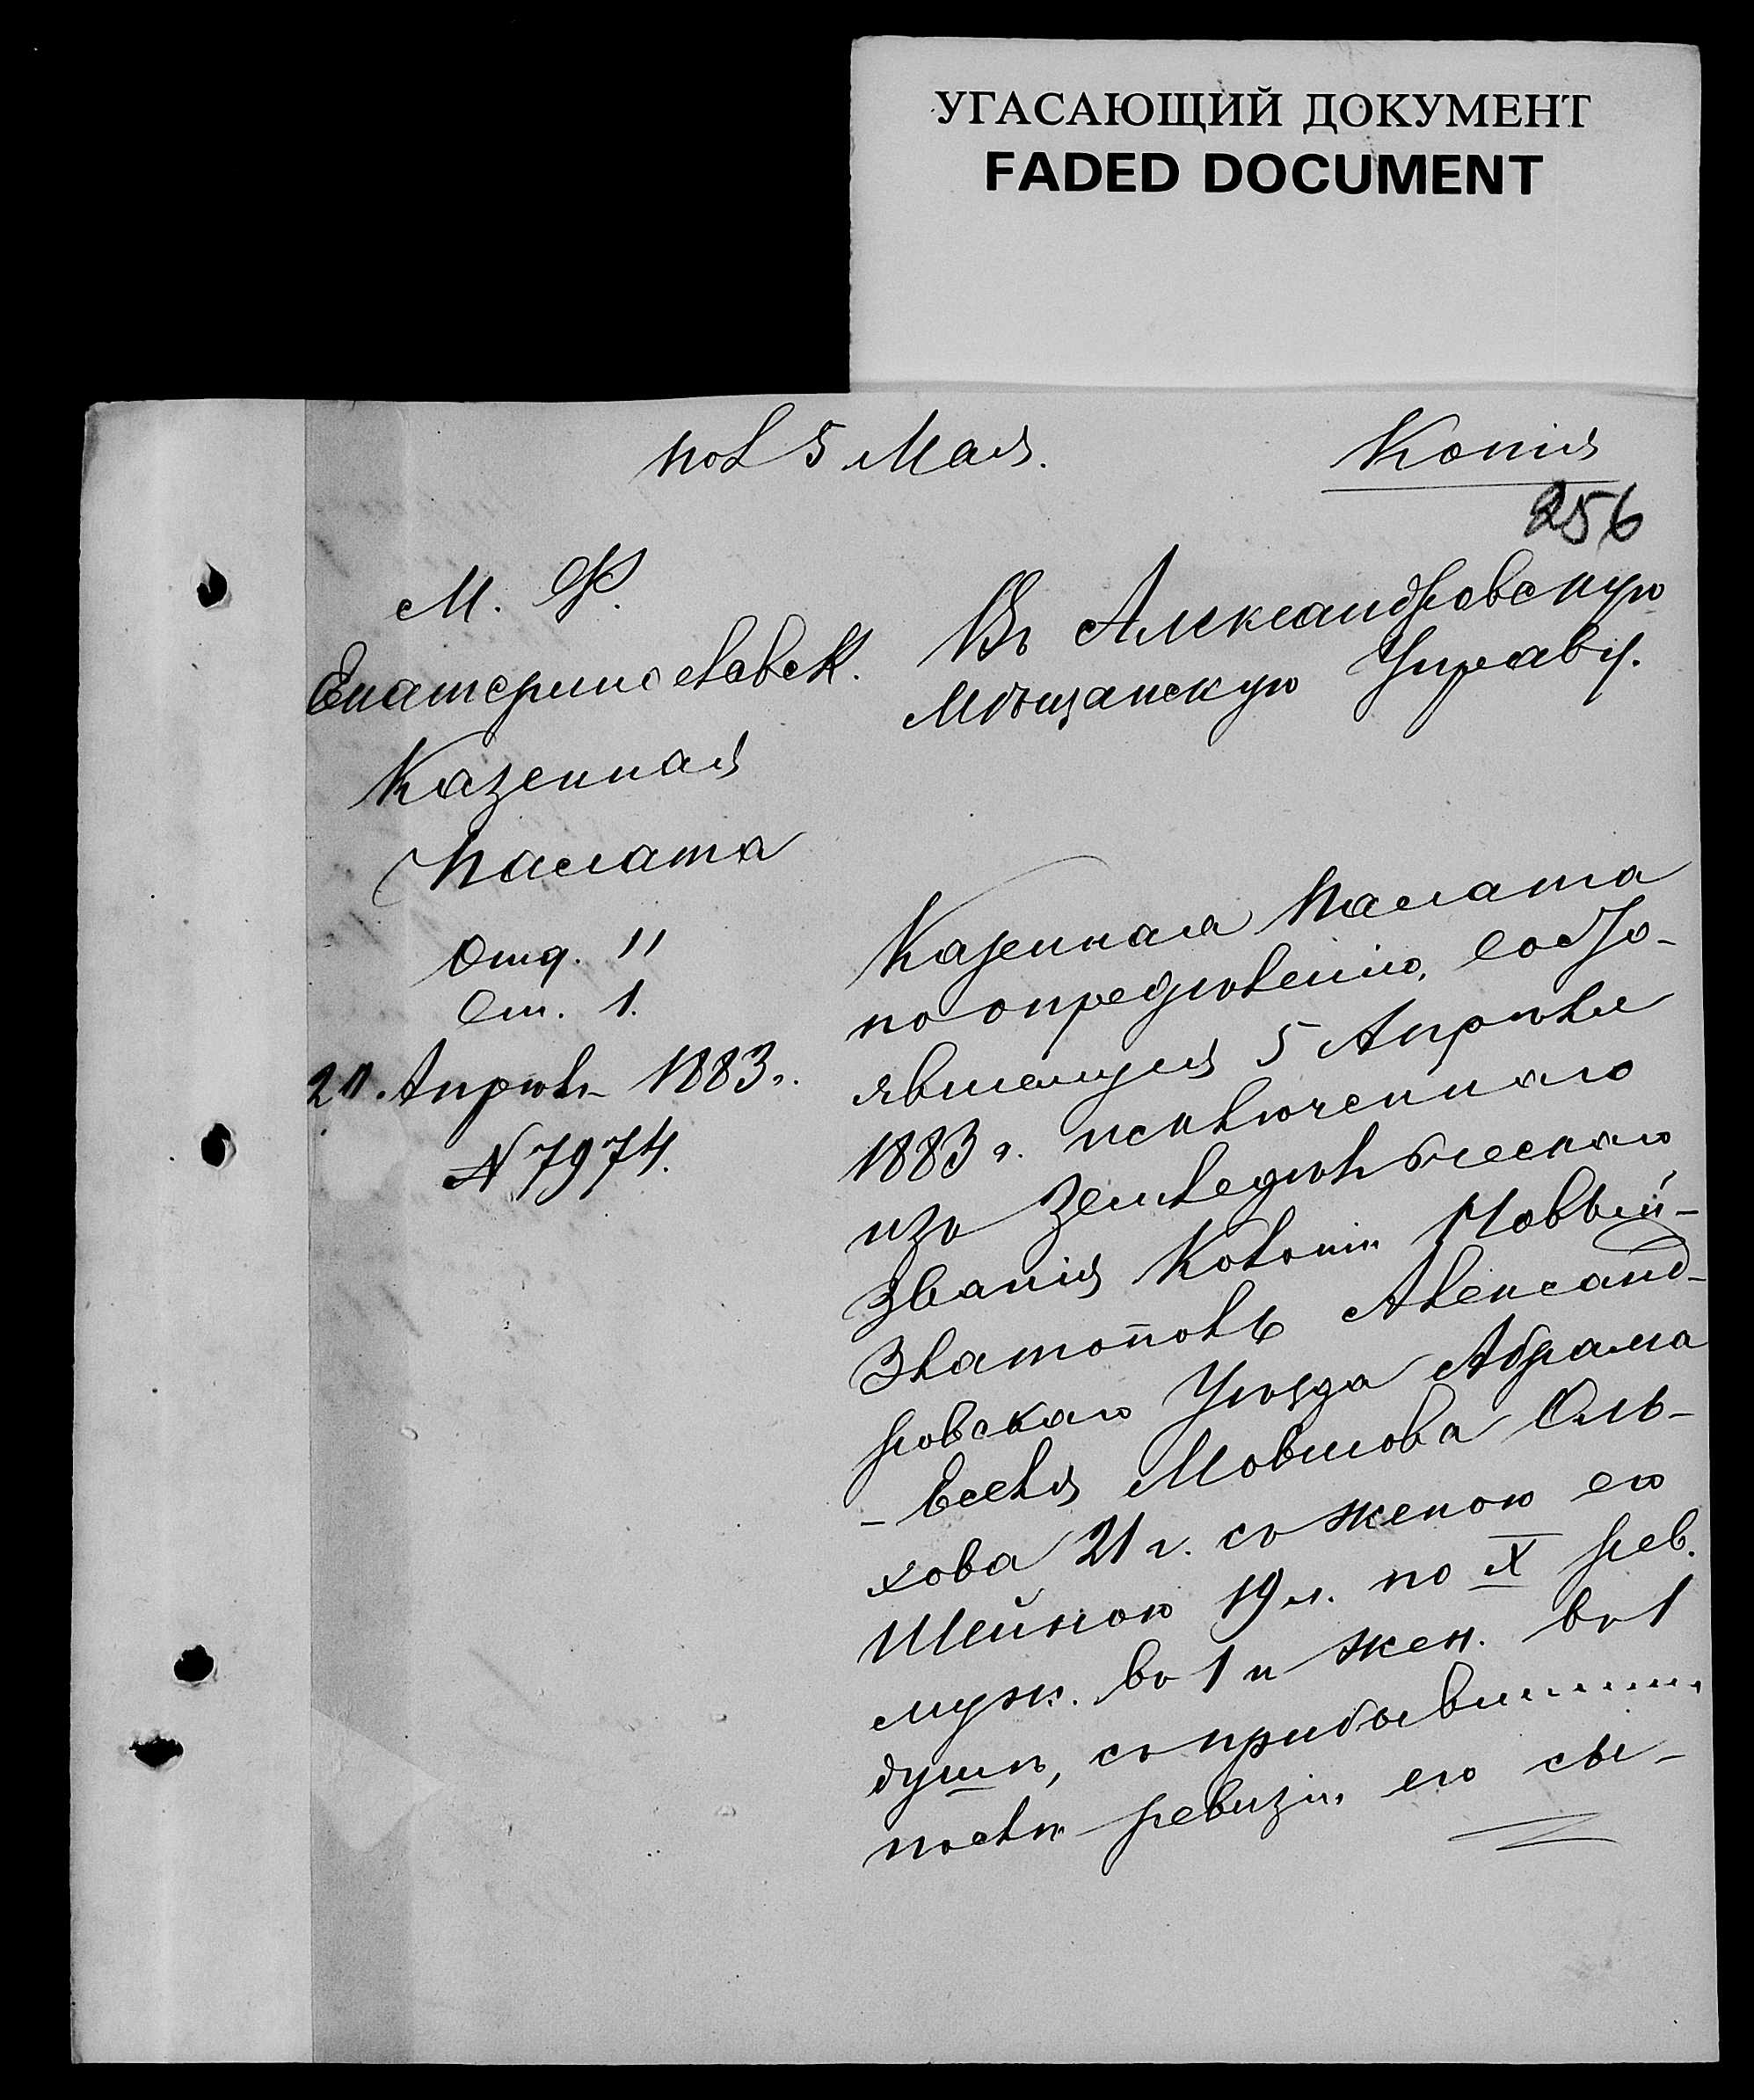 УГАСАЮЩИЙ ДОКУМЕНТ
FADED DOCUMENT
пол 5 Мая.
Копія
256
М. Ф.
Екатеринославск.
Казенная
Палата
Отд. II
Ст. 1.
20 Апрѣл 1883 г.
№ 7974.
Въ Александровскую
Мѣщанскую Управу.
Казенная Палата
по опредѣленію, состо-
явшемуся 5 Апрѣля
1883 г. исключеннаго
изъ Земледѣльческаго
званія Колоніи Новый-
Златополь Александ-
ровскаго Уѣзда Абрама
-Евселя Мовшова Оль-
хова 21 г. съ женою его
Шейною 19 л. по X рев.
муж. въ 1 и жен. въ 1
душѣ, съ прибывшимъ
послѣ ревизіи его сы-